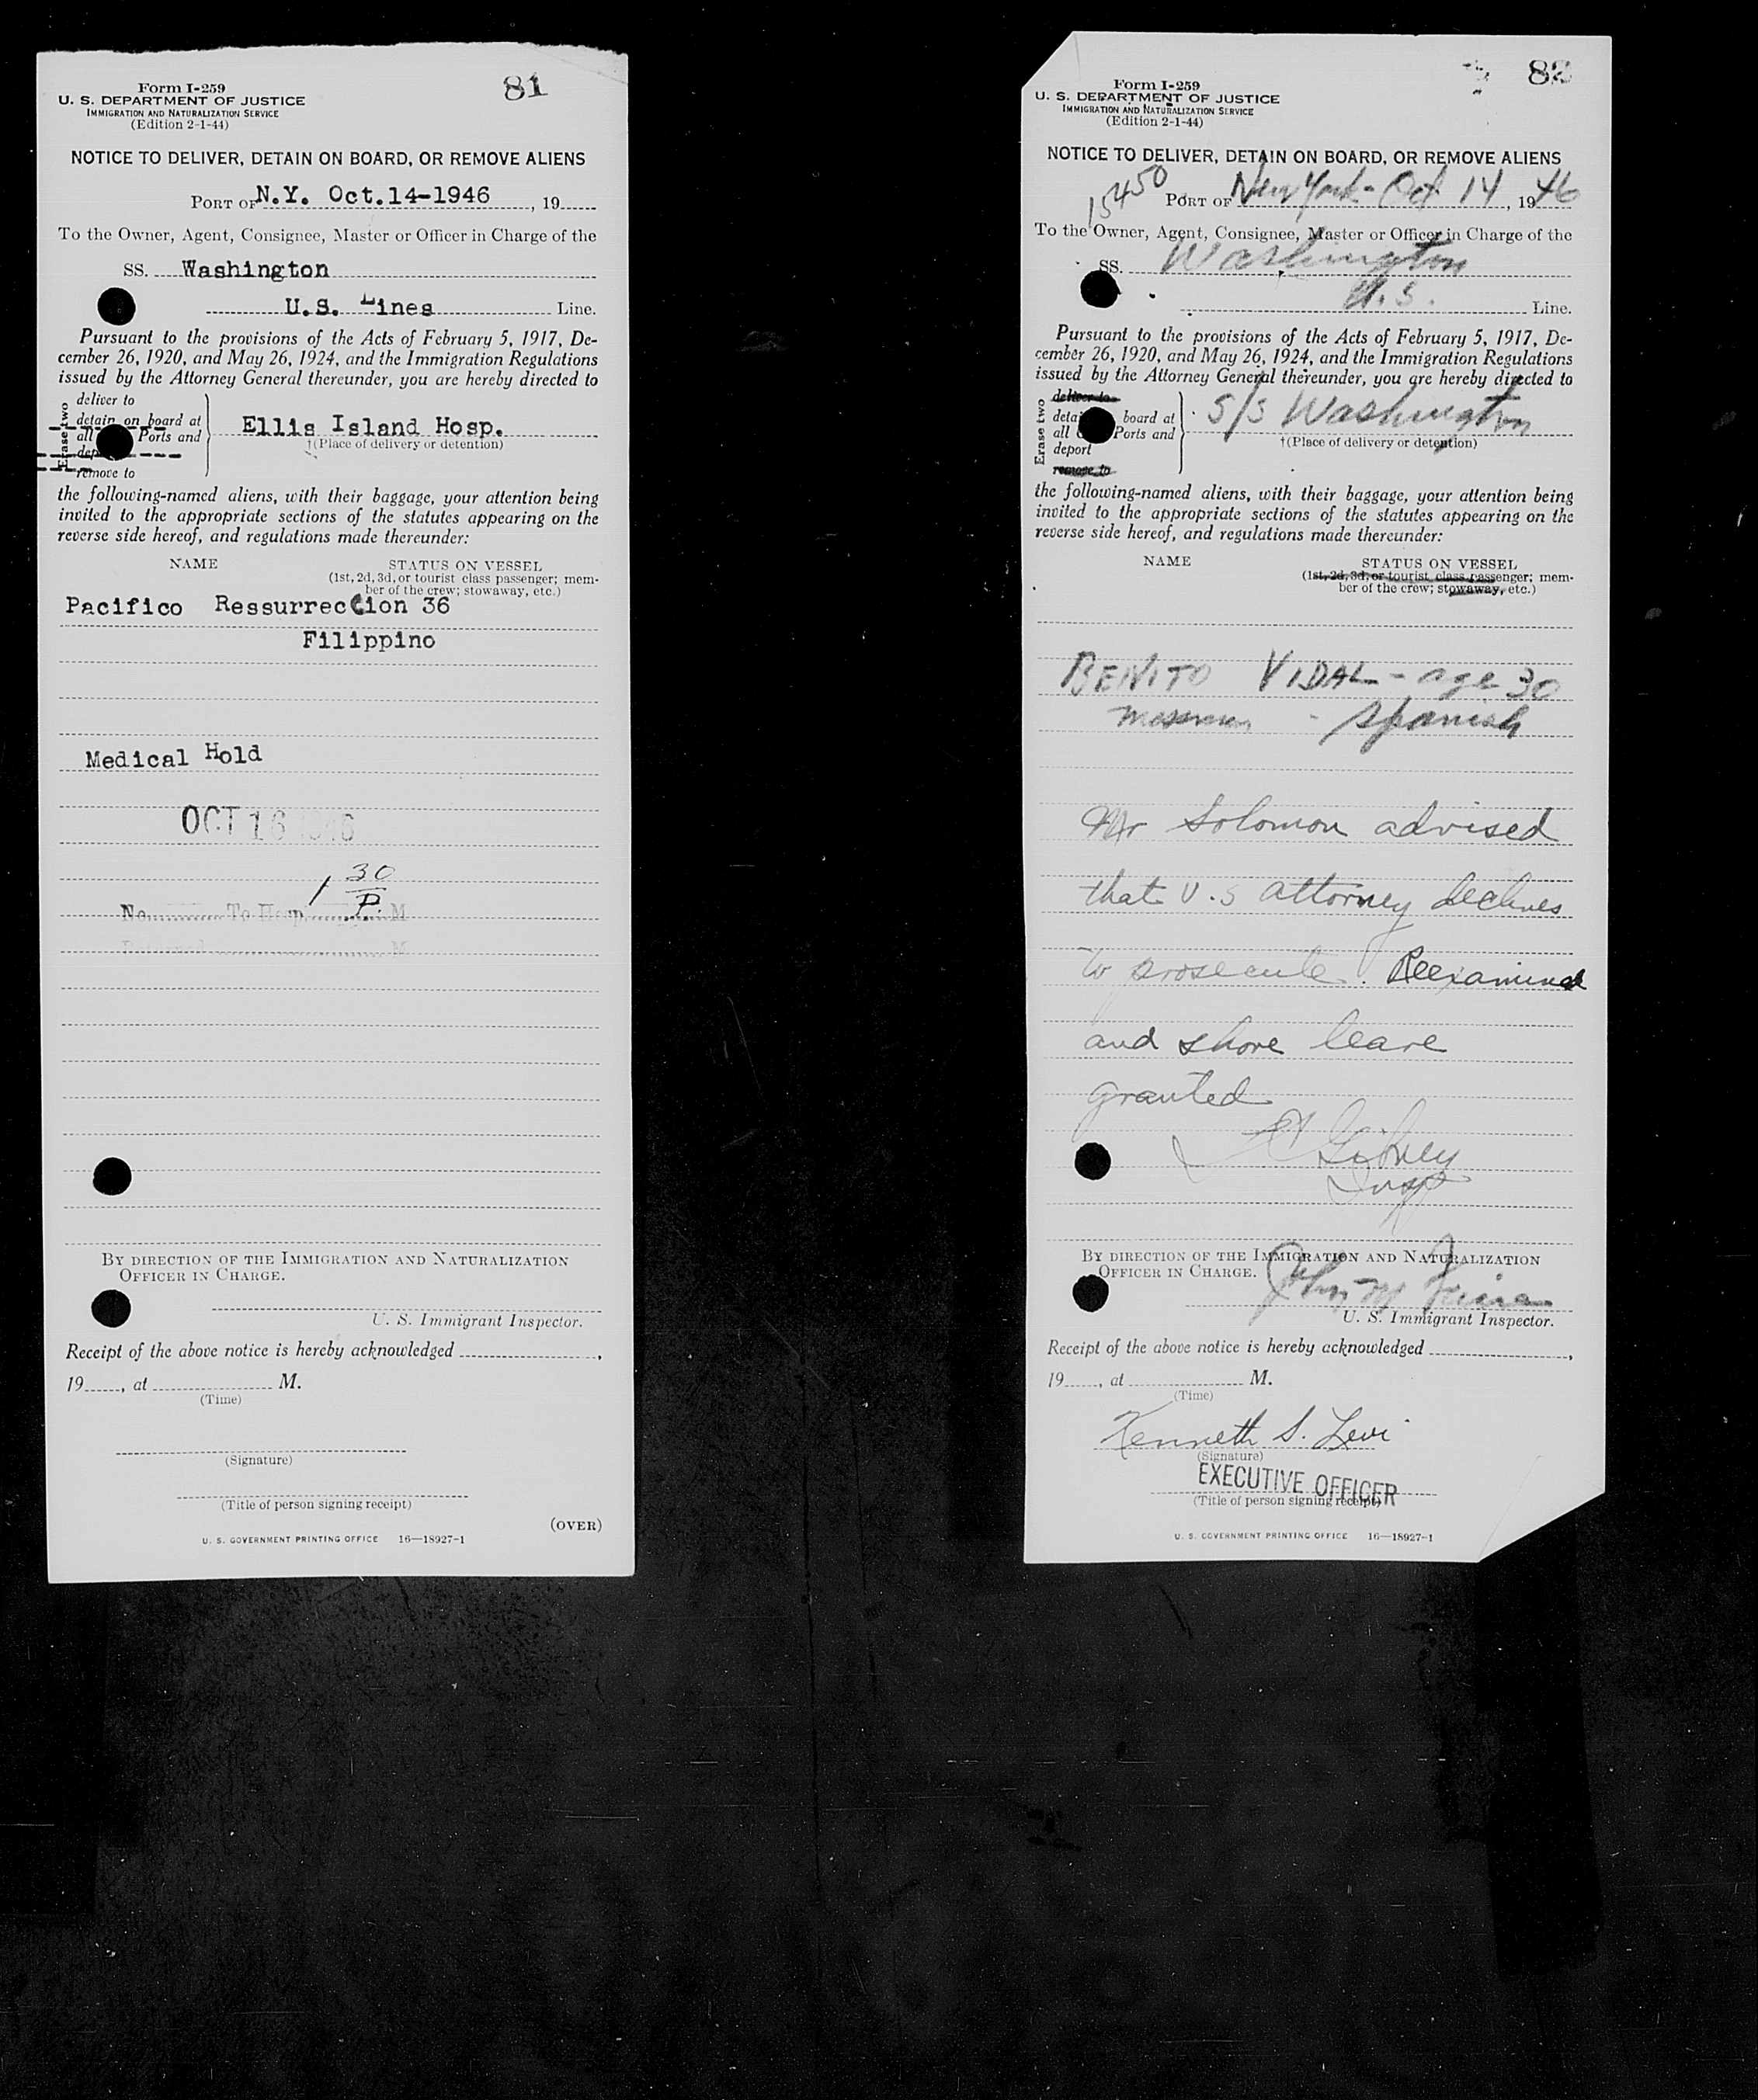 Form I-259
U. S. DEPARTMENT OF JUSTICE
IMMIGRATION AND NATURALIZATION SERVICE
(Edition 2-1-44)
81
NOTICE TO DELIVER, DETAIN ON BOARD, OR REMOVE ALIENS
PORT OF N.Y. Oct.14-1946, 19
To the Owner, Agent, Consignee, Master or Officer in Charge of the
SS. Washington
U.S. Lines Line.
Pursuant to the provisions of the Acts of February 5, 1917, De-
cember 26, 1920, and May 26, 1924, and the Immigration Regulations
issued by the Attorney General thereunder, you are hereby directed to
Erase two
deliver to
detain on board at
all Ports and
remove to
Ellis Island Hosp.
†(Place of delivery or detention)
the following-named aliens, with their baggage, your attention being
invited to the appropriate sections of the statutes appearing on the
reverse side hereof, and regulations made thereunder:
NAME STATUS ON VESSEL
(1st, 2d, 3d, or tourist class passenger; mem-
ber of the crew; stowaway, etc.)
Pacifico Ressurreccion 36
Filippino
Medical Hold
OCT 16 1946
1 30
P.
No. To Hosp. M
M
BY DIRECTION OF THE IMMIGRATION AND NATURALIZATION
OFFICER IN CHARGE.
U. S. Immigrant Inspector.
Receipt of the above notice is hereby acknowledged ,
19 , at M.
(Time)
(Signature)
(Title of person signing receipt)
(OVER)
U. S. GOVERNMENT PRINTING OFFICE 16—18927-1
Form I-259
U. S. DEPARTMENT OF JUSTICE
IMMIGRATION AND NATURALIZATION SERVICE
(Edition 2-1-44)
82
NOTICE TO DELIVER, DETAIN ON BOARD, OR REMOVE ALIENS
15450
PORT OF New York - Oct 14, 1946
To the Owner, Agent, Consignee, Master or Officer in Charge of the
SS. Washington
U.S. Line.
Pursuant to the provisions of the Acts of February 5, 1917, De-
cember 26, 1920, and May 26, 1924, and the Immigration Regulations
issued by the Attorney General thereunder, you are hereby directed to
Erase two
deliver to
board at
all Ports and
deport
remove to
S/S Washington
†(Place of delivery or detention)
the following-named aliens, with their baggage, your attention being
invited to the appropriate sections of the statutes appearing on the
reverse side hereof, and regulations made thereunder:
NAME STATUS ON VESSEL
(1st, 2d, 3d, or tourist class passenger; mem-
ber of the crew; stowaway, etc.)
BENITO VIDAL - age 30
messman - Spanish
Mr Solomon advised
that U.S attorney declines
to prosecute. Reexamined
and shore leave
granted
Insp
BY DIRECTION OF THE IMMIGRATION AND NATURALIZATION
OFFICER IN CHARGE.
U. S. Immigrant Inspector.
Receipt of the above notice is hereby acknowledged ,
19 , at M.
(Time)
Kenneth S. Levi
(Signature)
EXECUTIVE OFFICER
(Title of person signing receipt)
U. S. GOVERNMENT PRINTING OFFICE 16—18927-1